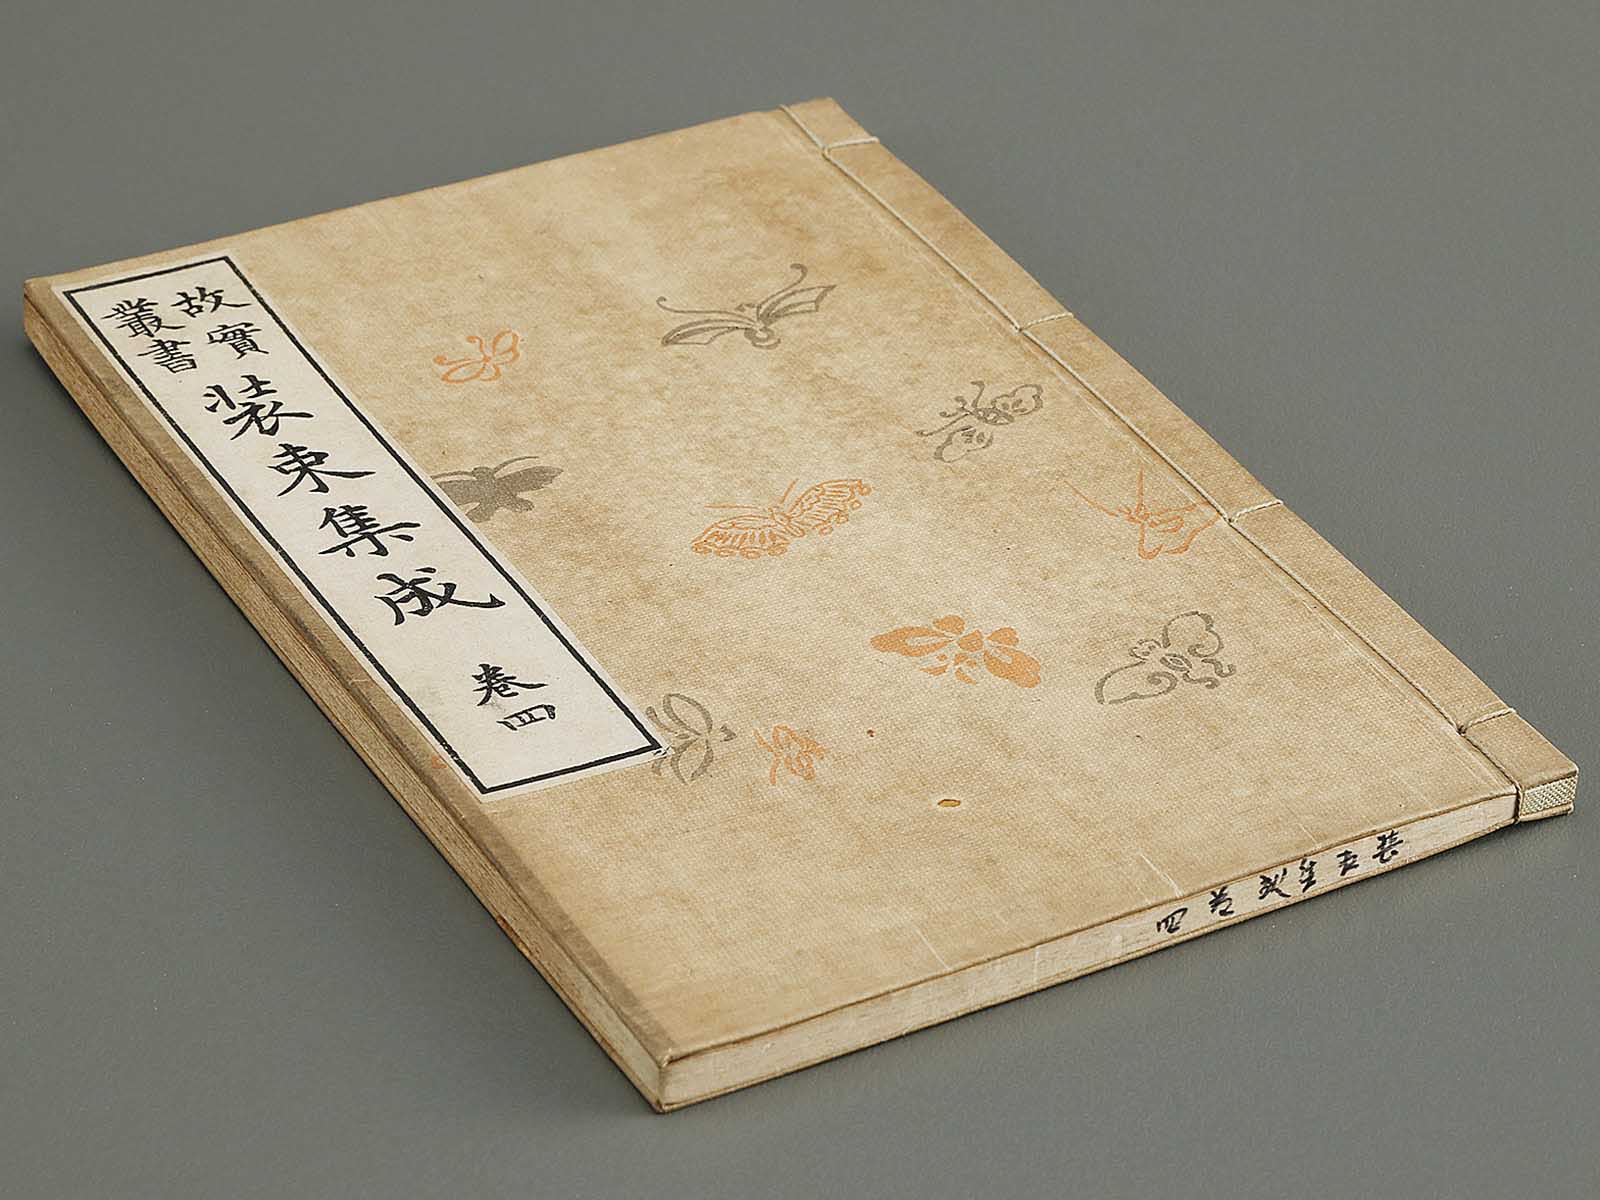 故實
叢書
装束集成 卷四
装束集成 卷四